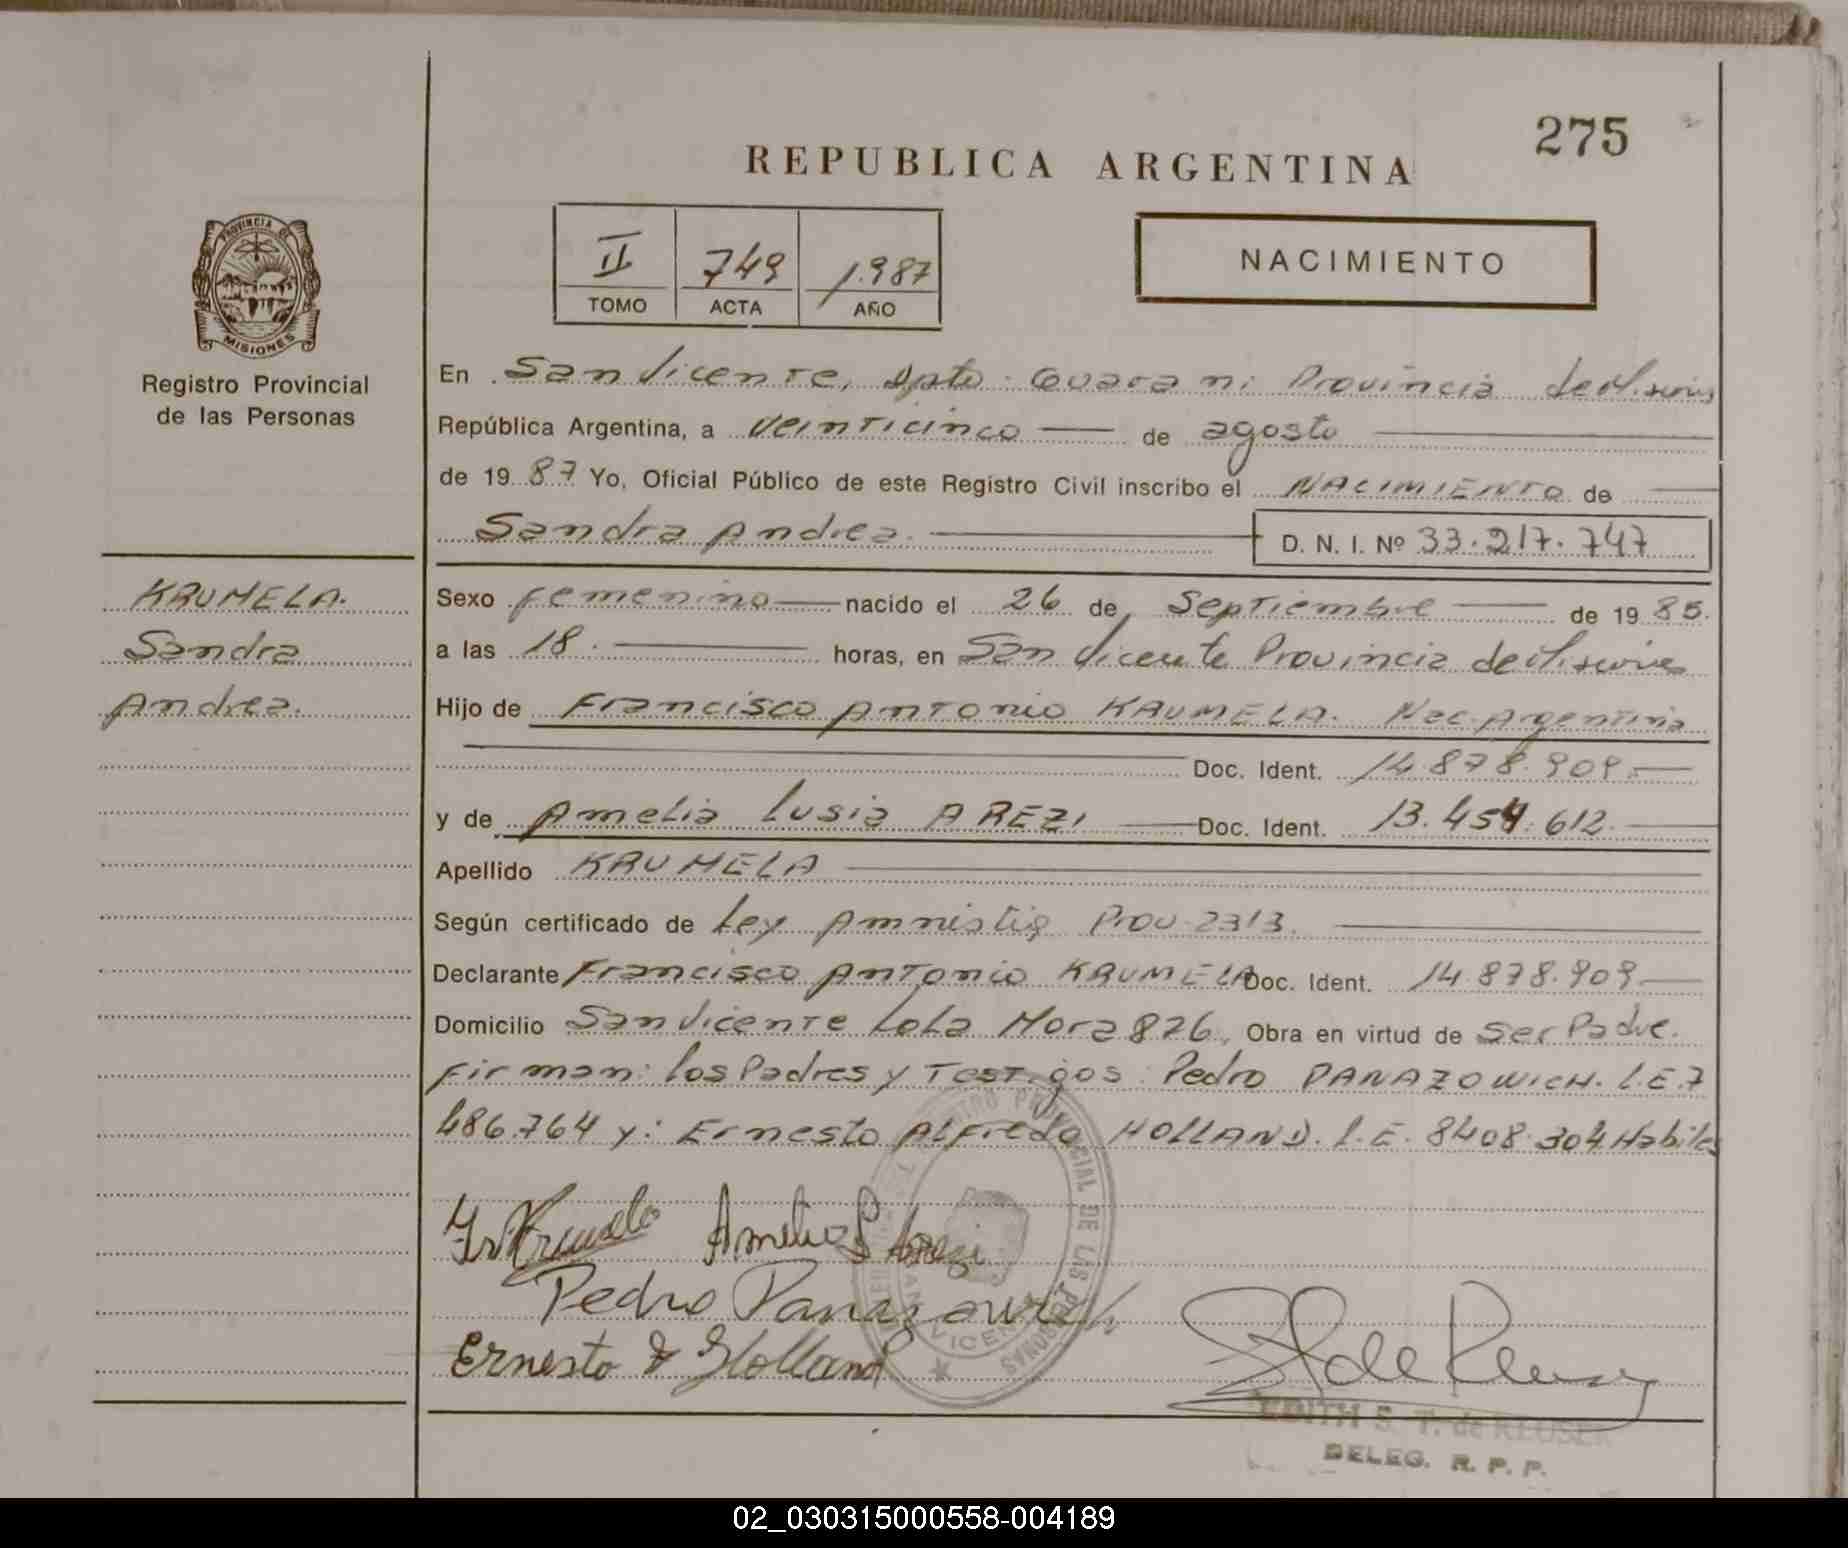 275
REPUBLICA ARGENTINA
II 749 1.987
TOMO ACTA AÑO
NACIMIENTO
PROVINCIA DE
MISIONES
Registro Provincial
de las Personas
KRUMELA.
Sandra
Andrea.
En San Vicente, Dpto. Guarani Provincia de Misiones
República Argentina, a veinticinco de agosto
de 1987 Yo, Oficial Público de este Registro Civil inscribo el NACIMIENTO de
Sandra Andrea. D. N. I. Nº 33.217.747
Sexo femenino nacido el 26 de Septiembre de 1985.
a las 18. horas, en San Vicente Provincia de Misiones
Hijo de Francisco Antonio KRUMELA. Nac. Argentina
Doc. Ident. 14.878.909.
y de Amelia Lusia AREZI Doc. Ident. 13.454.612.
Apellido KRUMELA
Según certificado de Ley Amnistia Prov. 2313.
Declarante Francisco Antonio KRUMELA Doc. Ident. 14.878.909
Domicilio San Vicente Lola Mora 826, Obra en virtud de Ser Padre.
Firman: los Padres y Testigos: Pedro PANAZOWICH. L.E.7
486.764 y: Ernesto Alfredo HOLLAND. L.E. 8408.304 Habiles
Amelia L Arezi
Pedro Panazowich
Ernesto A Holland
EDITH S. T. de KEUSER
DELEG. R. P. P.
02_030315000558-004189